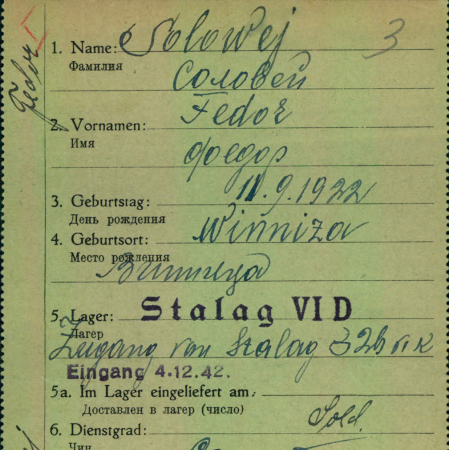 Fedor
3
1. Name: Solowej
Фамилия
Соловей
Fedor
2. Vornamen:
Имя
Федор
3. Geburtstag: 11.9.1922
День рождения
4. Geburtsort: Winniza
Место рождения
Винница
5. Lager: Stalag VI D
Лагер
Zugang von Stalag 326 VI K
Eingang 4.12.42.
5a. Im Lager eingeliefert am:
Доставлен в лагер (число)
6. Dienstgrad: Sold.
Чин